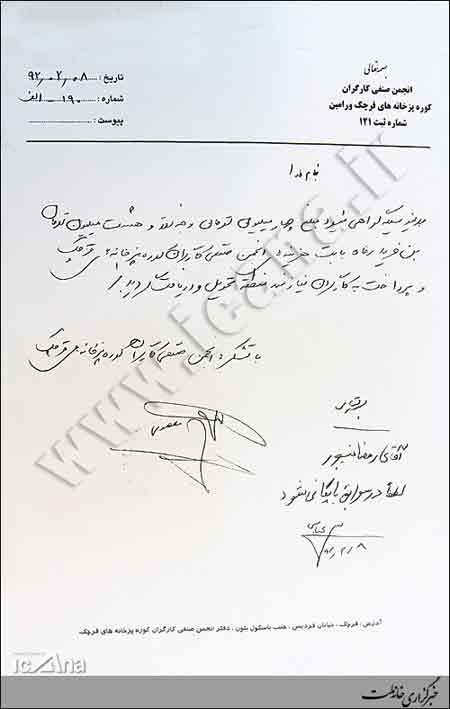 بسمه‌تعالی
انجمن صنفی کارگران
کوره پزخانه های قرچک ورامین
شماره ثبت ۱۲۱
تاریخ : ۹۲،۰۲،۰۸
شماره : ۱۹۰ - الف
پیوست :
بنام خدا
بدینوسیله گواهی میشود مبلغ چهار میلیون تومان وجه نقد و هشت میلیون تومان
بن خرید رفاه بابت هزینه انجمن صنفی کارگران کوره پزخانه های قرچک
و پرداخت به کارگران نیازمند منطقه تحویل و دریافت گردید
با تشکر : انجمن صنفی کارگران کوره پزخانه های قرچک
آقای رمضانپور
لطفاً در سوابق بایگانی شود
آدرس : قرچک ، خیابان فردیس ، جنب باسکول بتون ، دفتر انجمن صنفی کارگران کوره پزخانه های قرچک
www.icana.ir
icana
خبرگزاری خانه ملت